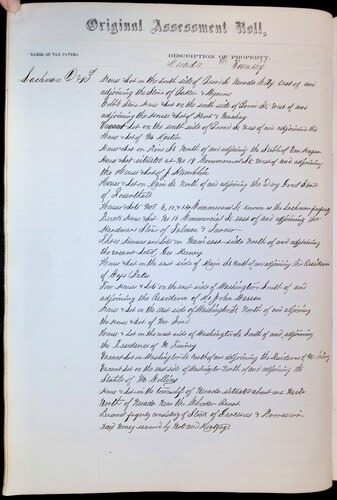 Original Assessment Roll,
NAMES OF TAX PAYERS.
DESCRIPTION OF PROPERTY.
Nevada Township
Lachman D & I
House & Lot on the South side of Broad St Nevada City East of and
adjoining the Store of &
Cobb Stone House & Lot on the South side of Broad St West of and
adjoining the House & Lot of Kent &
Vacant Lot on the South side of Broad St West of and adjoining the
House & Lot of Mr
House & Lot on Pine St North of and adjoining the Stable of Van Hagan
House & Lot situated at No 19 Commercial St East of and adjoining
the House & Lot of J
House & Lot on Main St North of and adjoining the Dry Good Store
of Rosenthal
House & Lots Nos 6, 10, & 14 Commercial St known as the Lachman property
House No 10 Commercial St East of and adjoining the
Hardware Store of &
Three Houses and Lots on Main East side North of and adjoining
the vacant Lot of Geo Kenney
House & Lot on the East side of Main St North of and adjoining the Residence
of
Two House & Lots on the East side of Washington South of and
adjoining the Residence of Mr John Masson
House & Lot on the East side of Washington St North of and adjoining
the House & Lot of Mr Ford
House & Lot on the West side of Washington St South of and adjoining
the Residence of Mr Turney
Vacant Lot on Washington St North of and adjoining the Residence of Mr
Vacant Lot on the East side of Washington North of and adjoining the
Stable of Mr Gillies
House & Lot in the township of Nevada situated about one mile
North of Nevada Near the
Personal property consisting of Stock of Groceries & Provisions
And Money secured by Note and Mortgage